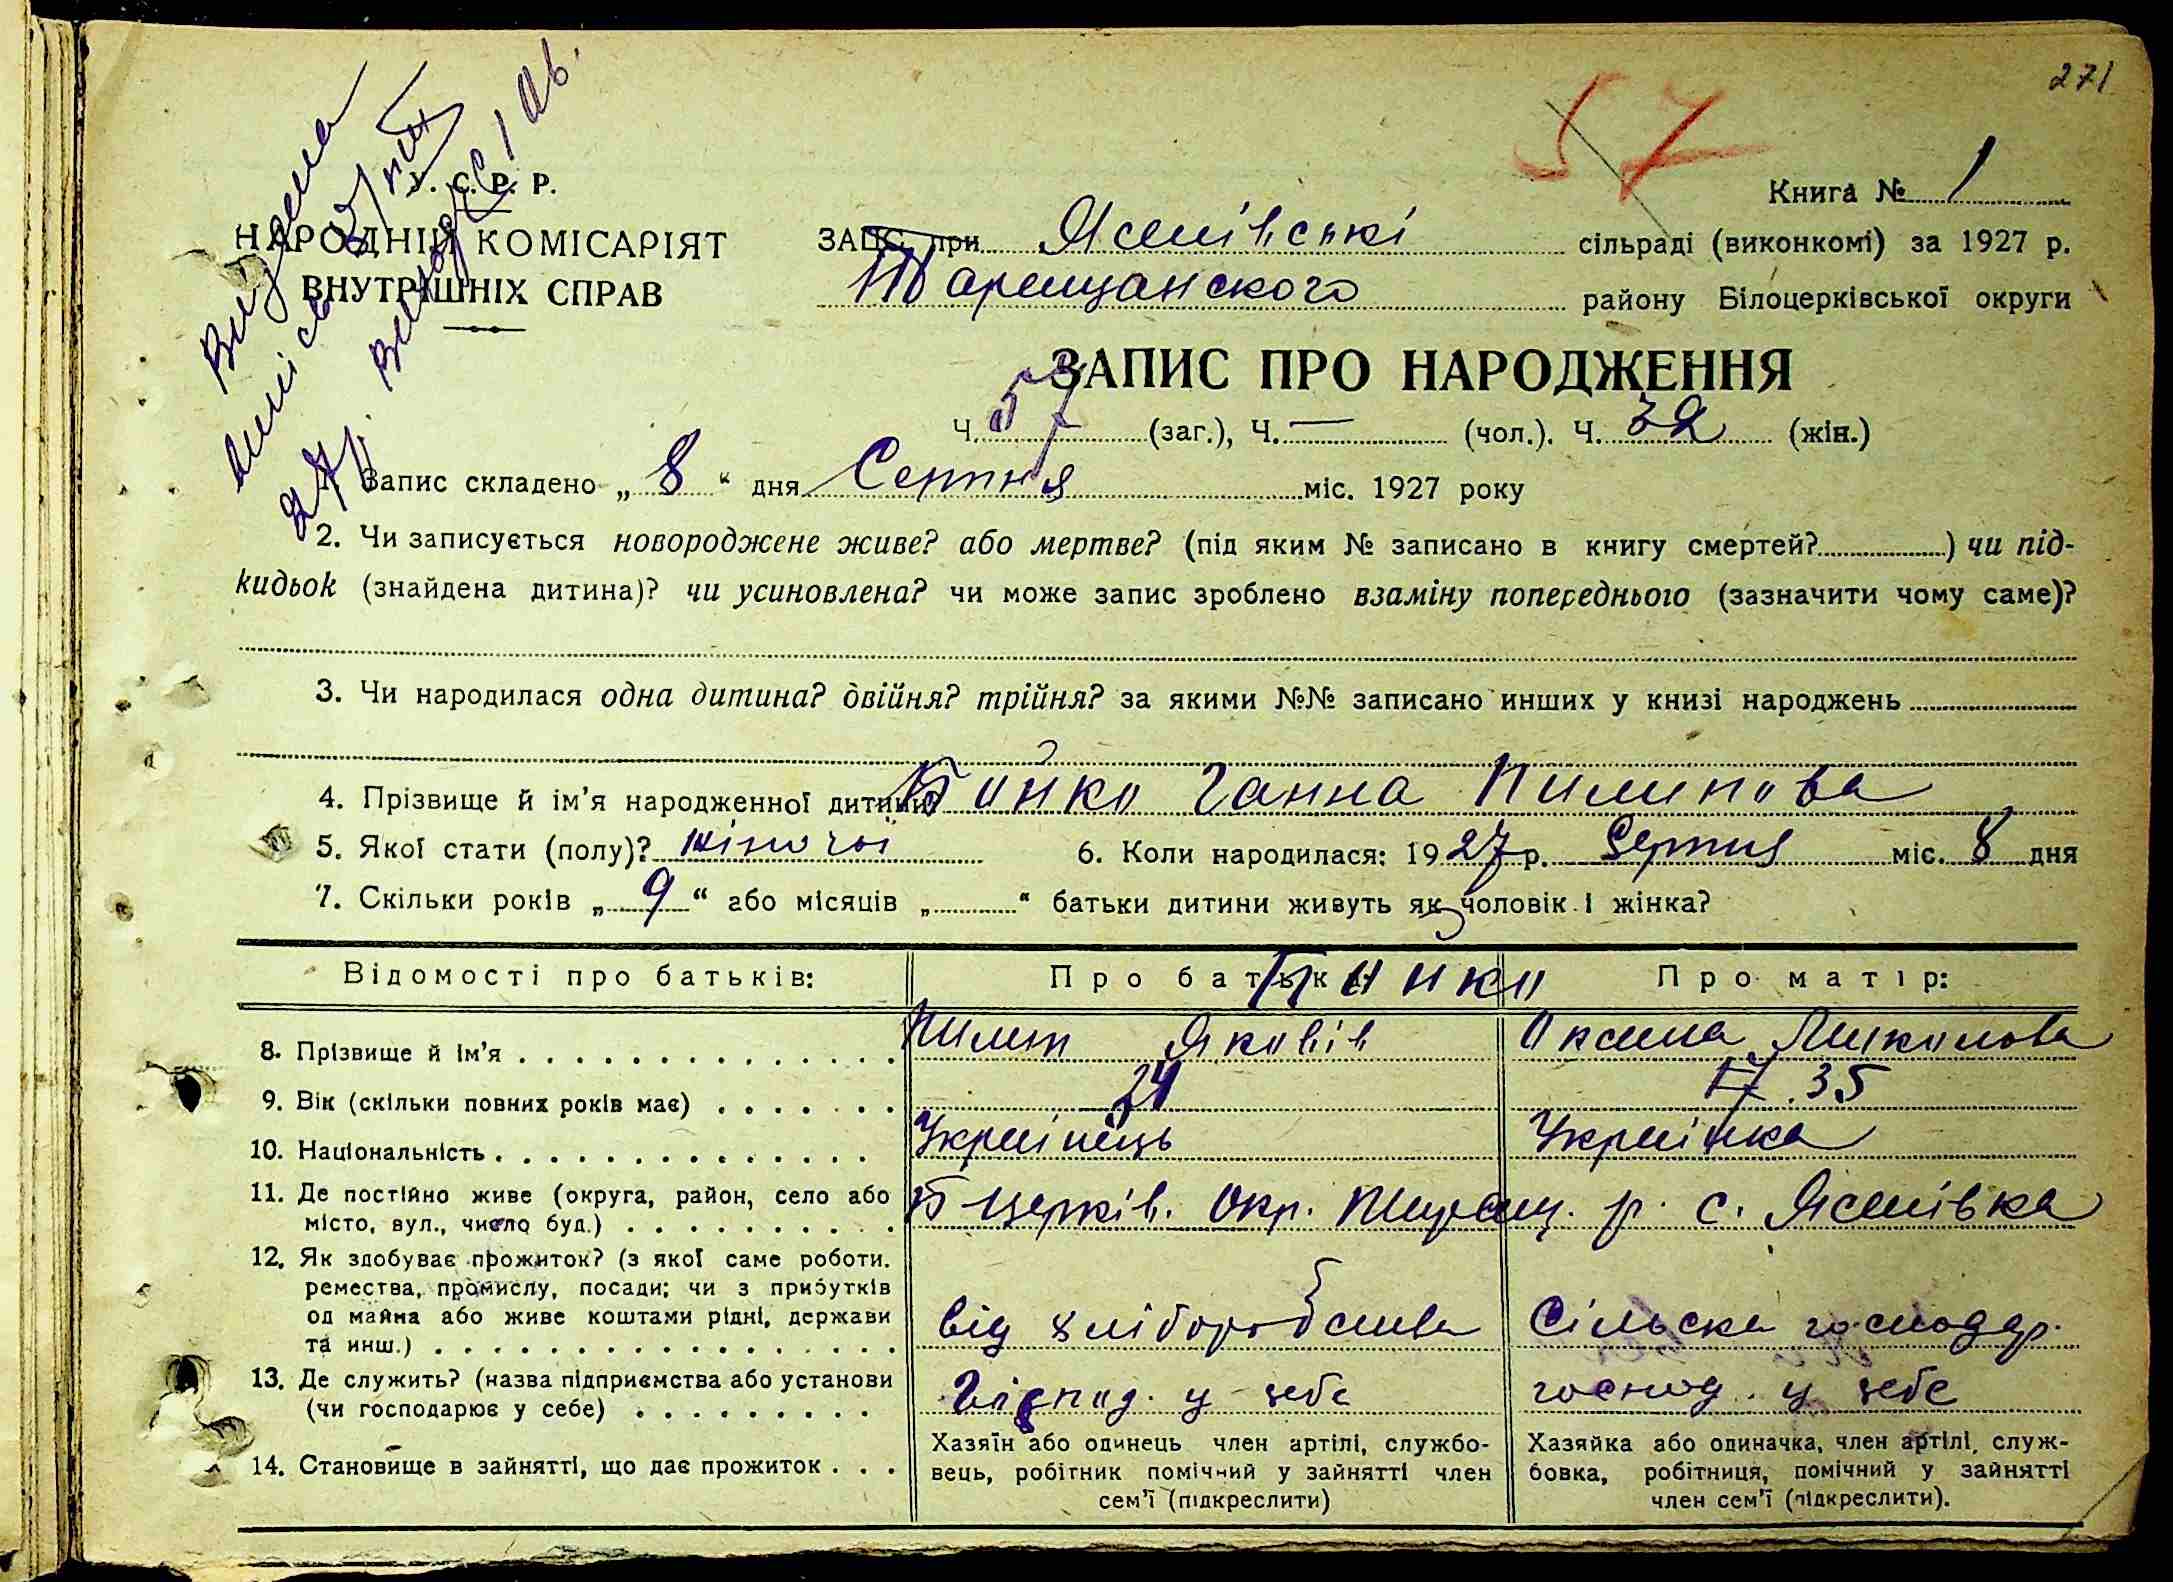 271
57
У. С. Р. Р.
НАРОДНІЙ КОМІСАРІЯТ
ВНУТРІШНІХ СПРАВ
Видана
27/
Книга № 1
ЗАГС при Ясенівські сільраді (виконкомі) за 1927 р.
Таращанского району Білоцерківської округи
ЗАПИС ПРО НАРОДЖЕННЯ
Ч. 57 (заг.), Ч. — (чол.). Ч. 32 (жін.)
1. Запис складено „ 8 “ дня Серпня міс. 1927 року
2. Чи записується новороджене живе? або мертве? (під яким № записано в книгу смертей? ) чи під-
кидьок (знайдена дитина)? чи усиновлена? чи може запис зроблено взаміну попереднього (зазначити чому саме)?
3. Чи народилася одна дитина? двійня? трійня? за якими №№ записано инших у книзі народжень
4. Прізвище й ім’я народженної дитини? Бойко Ганна Пилипова
5. Якої стати (полу)? жіночої 6. Коли народилася: 1927 р. Серпня міс. 8 дня
7. Скільки років „ 9 “ або місяців „ “ батьки дитини живуть як чоловік і жінка?
Відомості про батьків: Про батька: Про матір:
Бойко
8. Прізвище й ім’я Пилип Яковів Оксана Миколова
9. Вік (скільки повних років має) 24 35
10. Національність Українець Українка
11. Де постійно живе (округа, район, село або
місто, вул., число буд.) Б Церків. Окр. Таращ. р. с. Ясенівка
12. Як здобуває прожиток? (з якої саме роботи.
ремества, промислу, посади; чи з прибутків
од майна або живе коштами рідні, держави
та инш.) від хліборобства Сільске господар.
13. Де служить? (назва підприємства або установи
(чи господарює у себе) Господ. у себе господ. у себе
14. Становище в зайнятті, що дає прожиток
Хазяїн або одинець член артілі, службо-
вець, робітник помічний у зайнятті член
сем’ї (підкреслити)
Хазяйка або одиначка, член артілі, служ-
бовка, робітниця, помічний у зайнятті
член сем’ї (підкреслити).